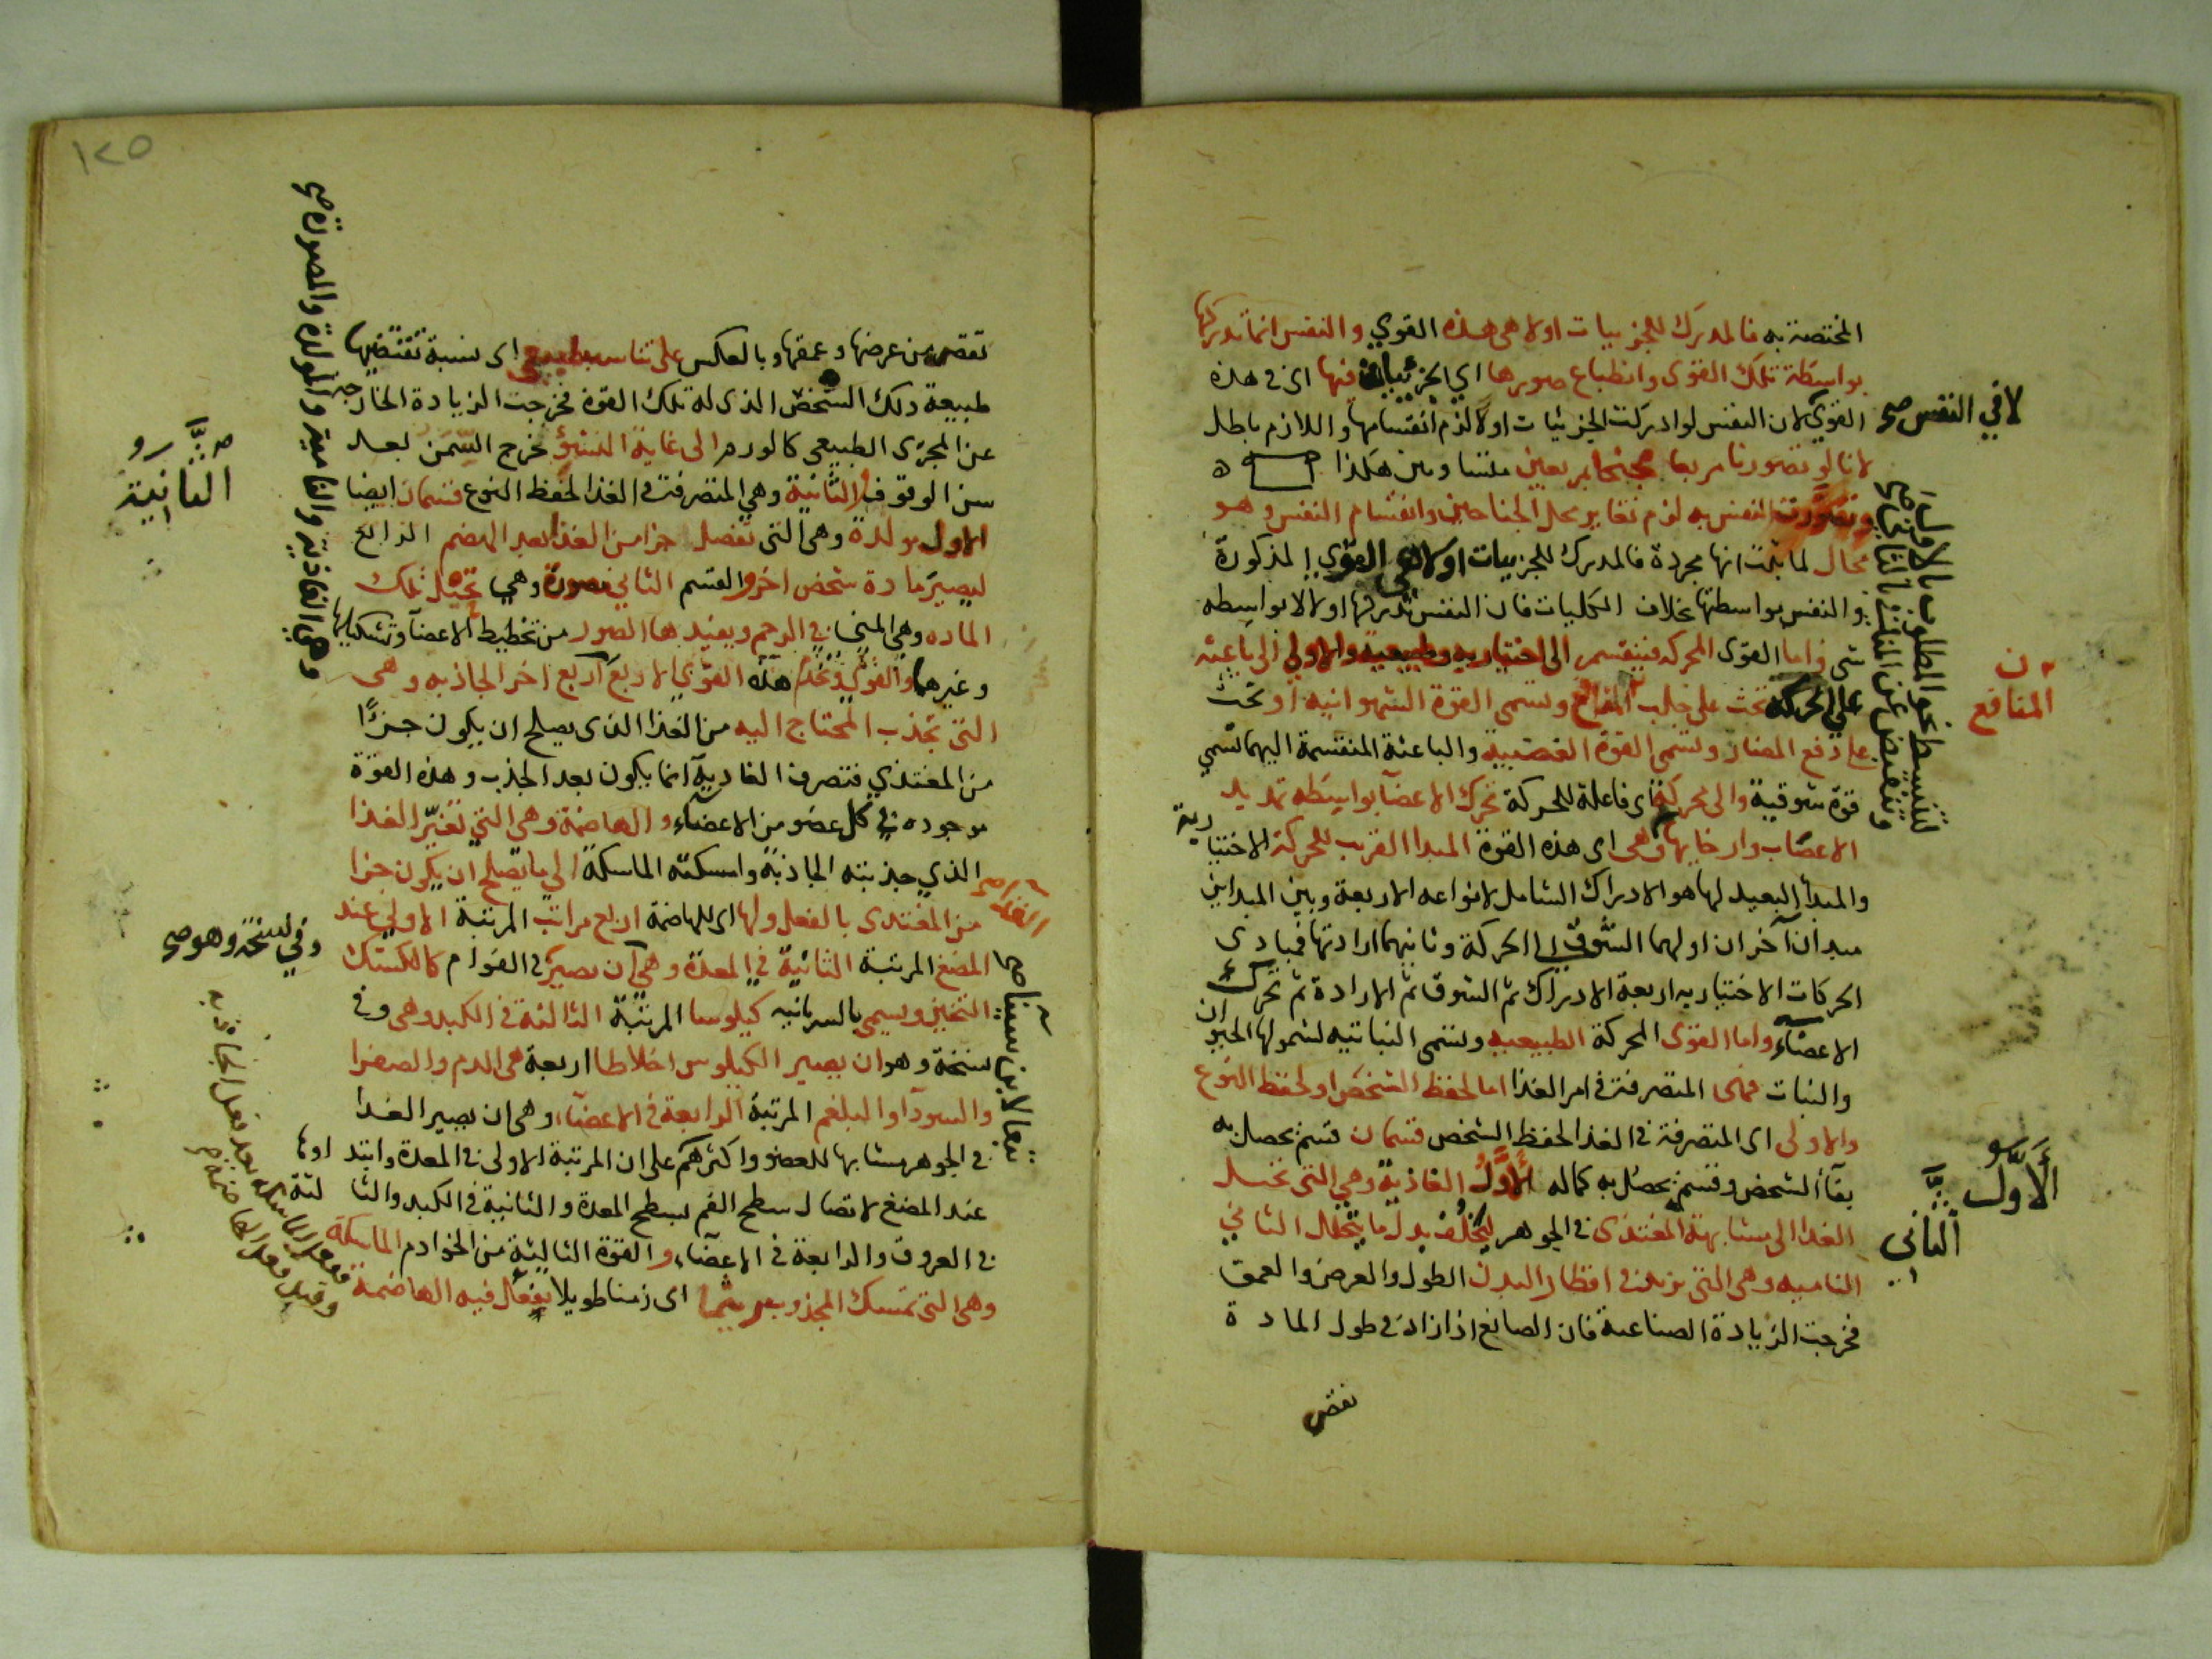 المختصة به فالمدرك للجزييات اولا هي هذه القوي والنفس انما تدركها
بواسطة تلك القوى وانطباع صورها اي الجزئيات فيها اى في هذه
القوى لان النفس لو ادركت الجزئيات اولا لزم انقسامها واللازم باطل
لانا لو تصورنا مربعا مجنحا بمربعين متساويين هكذا ه
وتصورت النفس به لزم تغاير محل الجناحين وانقسام النفس وهو
محال لما ثبت انها مجردة فالمدرك للجزييات اولا هي القوي المذكورة
والنفس بواسطتها بخلاف الكليات فان النفس تدركها اولا لا بواسطه
شى واما القوى المحركه فينقسم الى اختياريه وطبيعية والاولي الى باعثه
علي الحركة تحث على جلب المنافع وتسمى القوة الشهوانيه او تحث
على دفع المضار وتسمى القوة الغضبية والباعثة المنقسمة اليهما تسمي
قوة شوقية والى محركة اى فاعلة للحركة تحرك الاعضآ بواسطه تمديد
الاعصاب وارخايها وهى اى هذه القوة المبدا القريب للحركة الاختيارية
والمبدأ البعيد لها هو الادراك الشامل لانواعه الاربعة وبين المبداين
مبدان آخران اولهما الشوق الى الحركة وثانيهما ارادتها فمبادى
الحركات الاختياريه اربعة الادراك ثم الشوق ثم الارادة ثم تحرك
الاعضآء واما القوى المحركة الطبيعيه وتسمى النباتيه لشمولها الحيوان
والنبات فهى المتصرفة في امر الغذا اما لحفظ الشخص او لحفظ النوع
والاولى اى المتصرفة في الغذا لحفظ الشخص قسمان قسم يحصل به
بقآ الشخص وقسم يحصل به كماله الاول الغاذية وهي التى تحيل
الغذا الى مشابهة المغتذى في الجوهر ليخلف بدل ما يتحلل الثاني
الناميه وهى التى تزيد في اقطار البدن الطول والعرض والعمق
فخرجت الزيادة الصناعية فان الصانع اذا زاد في طول المادة
نقص
لا في النفس صح
لتنبسط نحو المطلوب بالاول
وتنقبض عن المنافر بالثاني صح
ن
المنافع
الاول
الثاني
١٢٥
نقص من عرضها وعمقها وبالعكس على تناسب طبيعي اى نسبة تقتضيها
طبيعة ذلك الشخص الذى له تلك القوة فخرجت الزيادة الخارجه
عن المجرى الطبيعى كالورم الى غاية النشؤ فخرج السمن بعد
سن الوقوف والثانية وهي المتصرفة في الغذا لحفظ النوع قسمان ايضا
الاول مولدة وهى التى تفصل جزا من الغذا بعد الهضم الرابع
ليصير مادة شخص اخر والقسم الثاني مصورة وهي تحيل تلك
الماده وهي المني في الرحم ويفيدها الصور من تخطيط الاعضآ وتشكيلها
وغيرهما والقوى وتخدم هذه القوي الاربع اربع اخر الجاذبه وهى
التى تجذب المحتاج اليه من الغذا الذى يصلح ان يكون جزءًا
من المغتذي فتصرف الغاديۃ انما يكون بعد الجذب وهذه القوة
موجوده في كل عضو من الاعضآء والهاضمة وهي التي تغير الغذا
الذي جذبته الجاذبة وامسكته الماسكة الي ما يصلح ان يكون جزا
من المغتدى بالفعل ولها اى للهاضمة اربع مراتب المرتبة الاولي عند
المضغ المرتبة الثانية في المعدة وهي ان يصير في القوام كالكشك
الثخين ويسمى بالسريانيه كيلوسا المرتبة الثالثة في الكبد وهى وفي
نسخة وهو ان يصير الكيلوس اخلاطا اربعة هى الدم والصفرا
والسودآ والبلغم المرتبة الرابعة في الاعضآء وهى ان يصير الغذا
في الجوهر مشابها للعضو واكثرهم على ان المرتبة الاولى في المعدة وابتداوها
عند المضغ لاتصال سطح الفم بسطح المعدة والثانية في الكبد والثالثة
في العروق والرابعة في الاعضآء والقوة الثالثة من الخوادم الماسكة
وهى التى تمسك المجذوب ريثما اى زمنا طويلا يفعل فيه الهاضمة
وهي الغاذية والنامية والمولدة والمصورة صح
الثانية
وفي نسخة وهو صح
تبعا لابن سينا صح
ففعل الماسكه بعد فعل الجاذبه
وقبل فعل الهاضمة صح